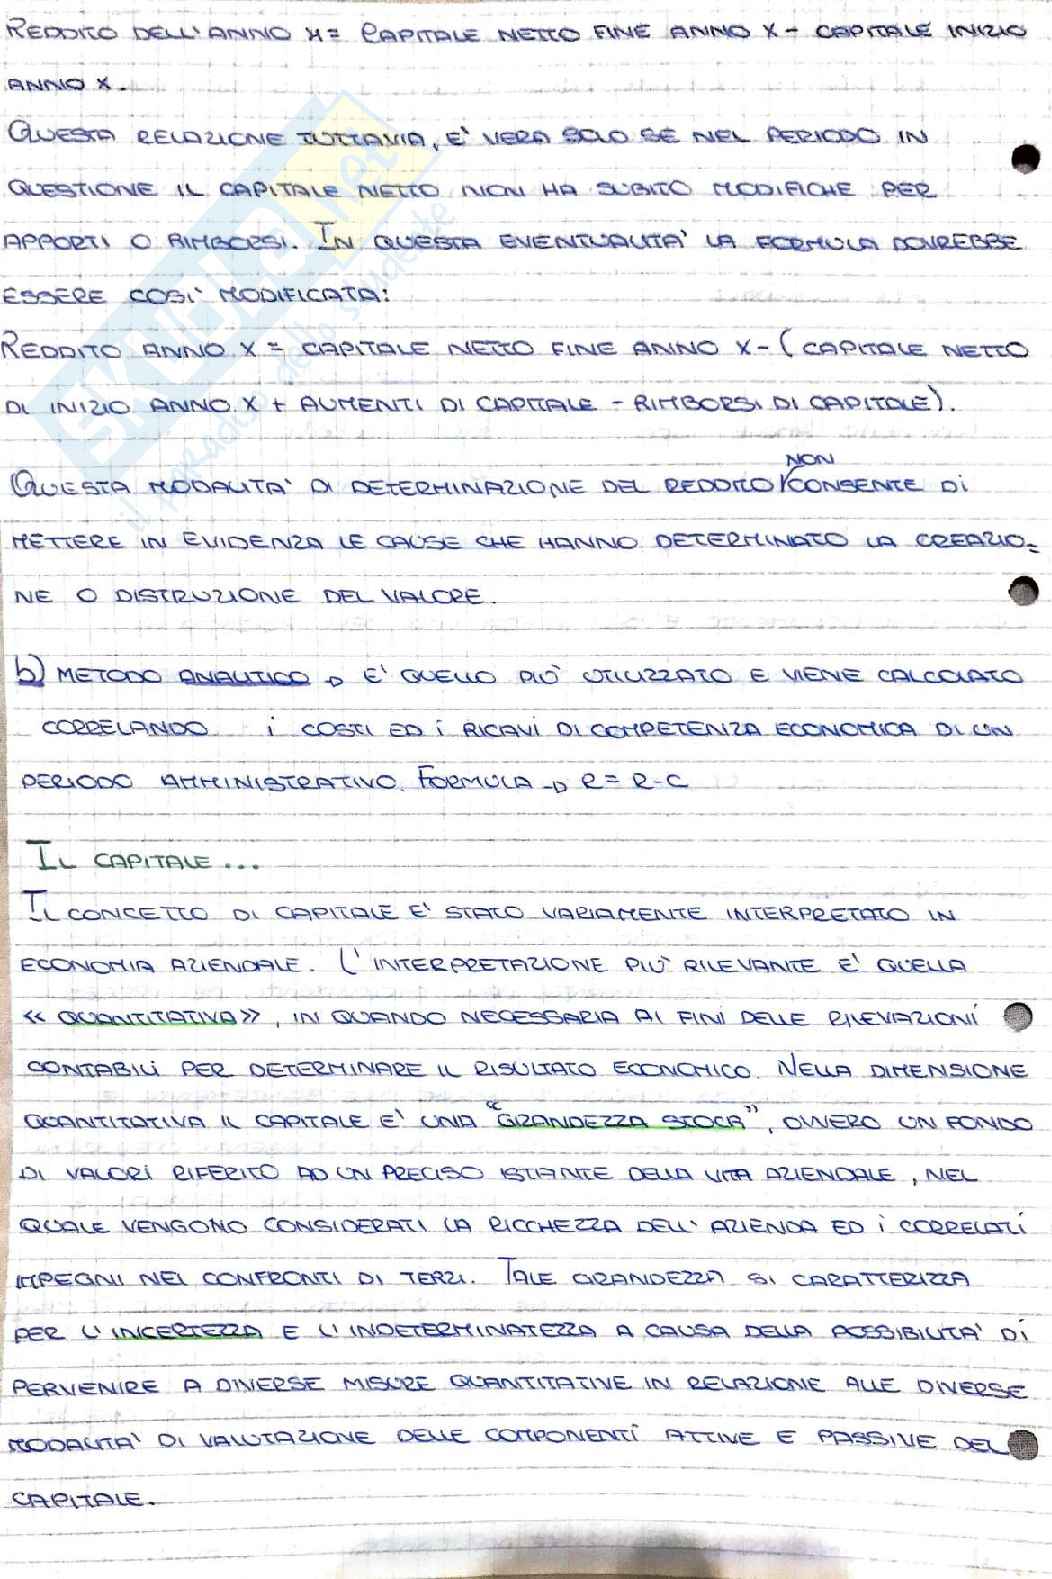 REDDITO DELL'ANNO X = CAPITALE NETTO FINE ANNO X - CAPITALE INIZIO
ANNO X.
QUESTA RELAZIONE TUTTAVIA, E' VERA SOLO SE NEL PERIODO IN
QUESTIONE IL CAPITALE NETTO NON HA SUBITO MODIFICHE PER
APPORTI O RIMBORSI. IN QUESTA EVENTUALITA' LA FORMULA DOVREBBE
ESSERE COSI' MODIFICATA:
REDDITO ANNO X = CAPITALE NETTO FINE ANNO X - (CAPITALE NETTO
DI INIZIO ANNO X + AUMENTI DI CAPITALE - RIMBORSI DI CAPITALE).
QUESTA MODALITA' DI DETERMINAZIONE DEL REDDITO NON CONSENTE DI
METTERE IN EVIDENZA LE CAUSE CHE HANNO DETERMINATO LA CREAZIO=
NE O DISTRUZIONE DEL VALORE.
b) METODO ANALITICO → E' QUELLO PIÙ UTILIZZATO E VIENE CALCOLATO
CORRELANDO I COSTI ED I RICAVI DI COMPETENZA ECONOMICA DI UN
PERIODO AMMINISTRATIVO. FORMULA → R = R - C
IL CAPITALE ...
IL CONCETTO DI CAPITALE E' STATO VARIAMENTE INTERPRETATO IN
ECONOMIA AZIENDALE. L'INTERPRETAZIONE PIU' RILEVANTE E' QUELLA
«QUANTITATIVA», IN QUANDO NECESSARIA AI FINI DELLE RILEVAZIONI
CONTABILI PER DETERMINARE IL RISULTATO ECONOMICO. NELLA DIMENSIONE
QUANTITATIVA IL CAPITALE E' UNA "GRANDEZZA STOCK", OVVERO UN FONDO
DI VALORI RIFERITO AD UN PRECISO ISTANTE DELLA VITA AZIENDALE, NEL
QUALE VENGONO CONSIDERATI LA RICCHEZZA DELL'AZIENDA ED I CORRELATI
IMPEGNI NEI CONFRONTI DI TERZI. TALE GRANDEZZA SI CARATTERIZZA
PER L'INCERTEZZA E L'INDETERMINATEZZA A CAUSA DELLA POSSIBILITA' DI
PERVENIRE A DIVERSE MISURE QUANTITATIVE IN RELAZIONE ALLE DIVERSE
MODALITA' DI VALUTAZIONE DELLE COMPONENTI ATTIVE E PASSIVE DEL
CAPITALE.
SKUOLA.net
il paradiso dello studente